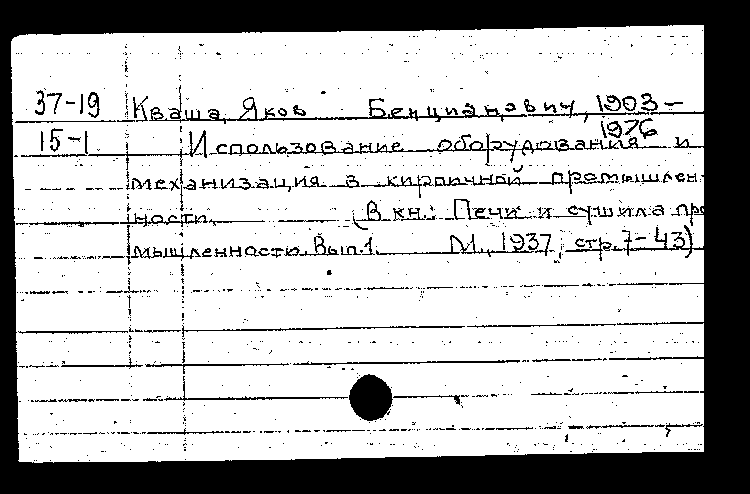 37-19 Кваша, Яков Бенцианович, 1903-
1976
15-1 Использование оборудования и
механизация в кирпичной промышлен-
ности. (В кн.: Печи и сушила про
мышленности. Вып. 1. М., 1937, стр. 7-43)